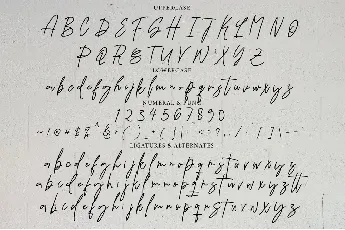 UPPERCASE
A B C D E F G H I J K L M N O
P Q R S T U V W X Y Z
LOWERCASE
a b c d e f g h i j k l m n o p q r s t u v w x y z
NUMERAL & PUNC
1 2 3 4 5 6 7 8 9 0
LIGATURES & ALTERNATES
a b c d e f g h i j k l m n o p q r s t u v w x y z
a b c d e f g h i j k l m n o p q r s t u v w x y z tt
a b c d e f g h i j k l m n o p q r s t u v w x y z